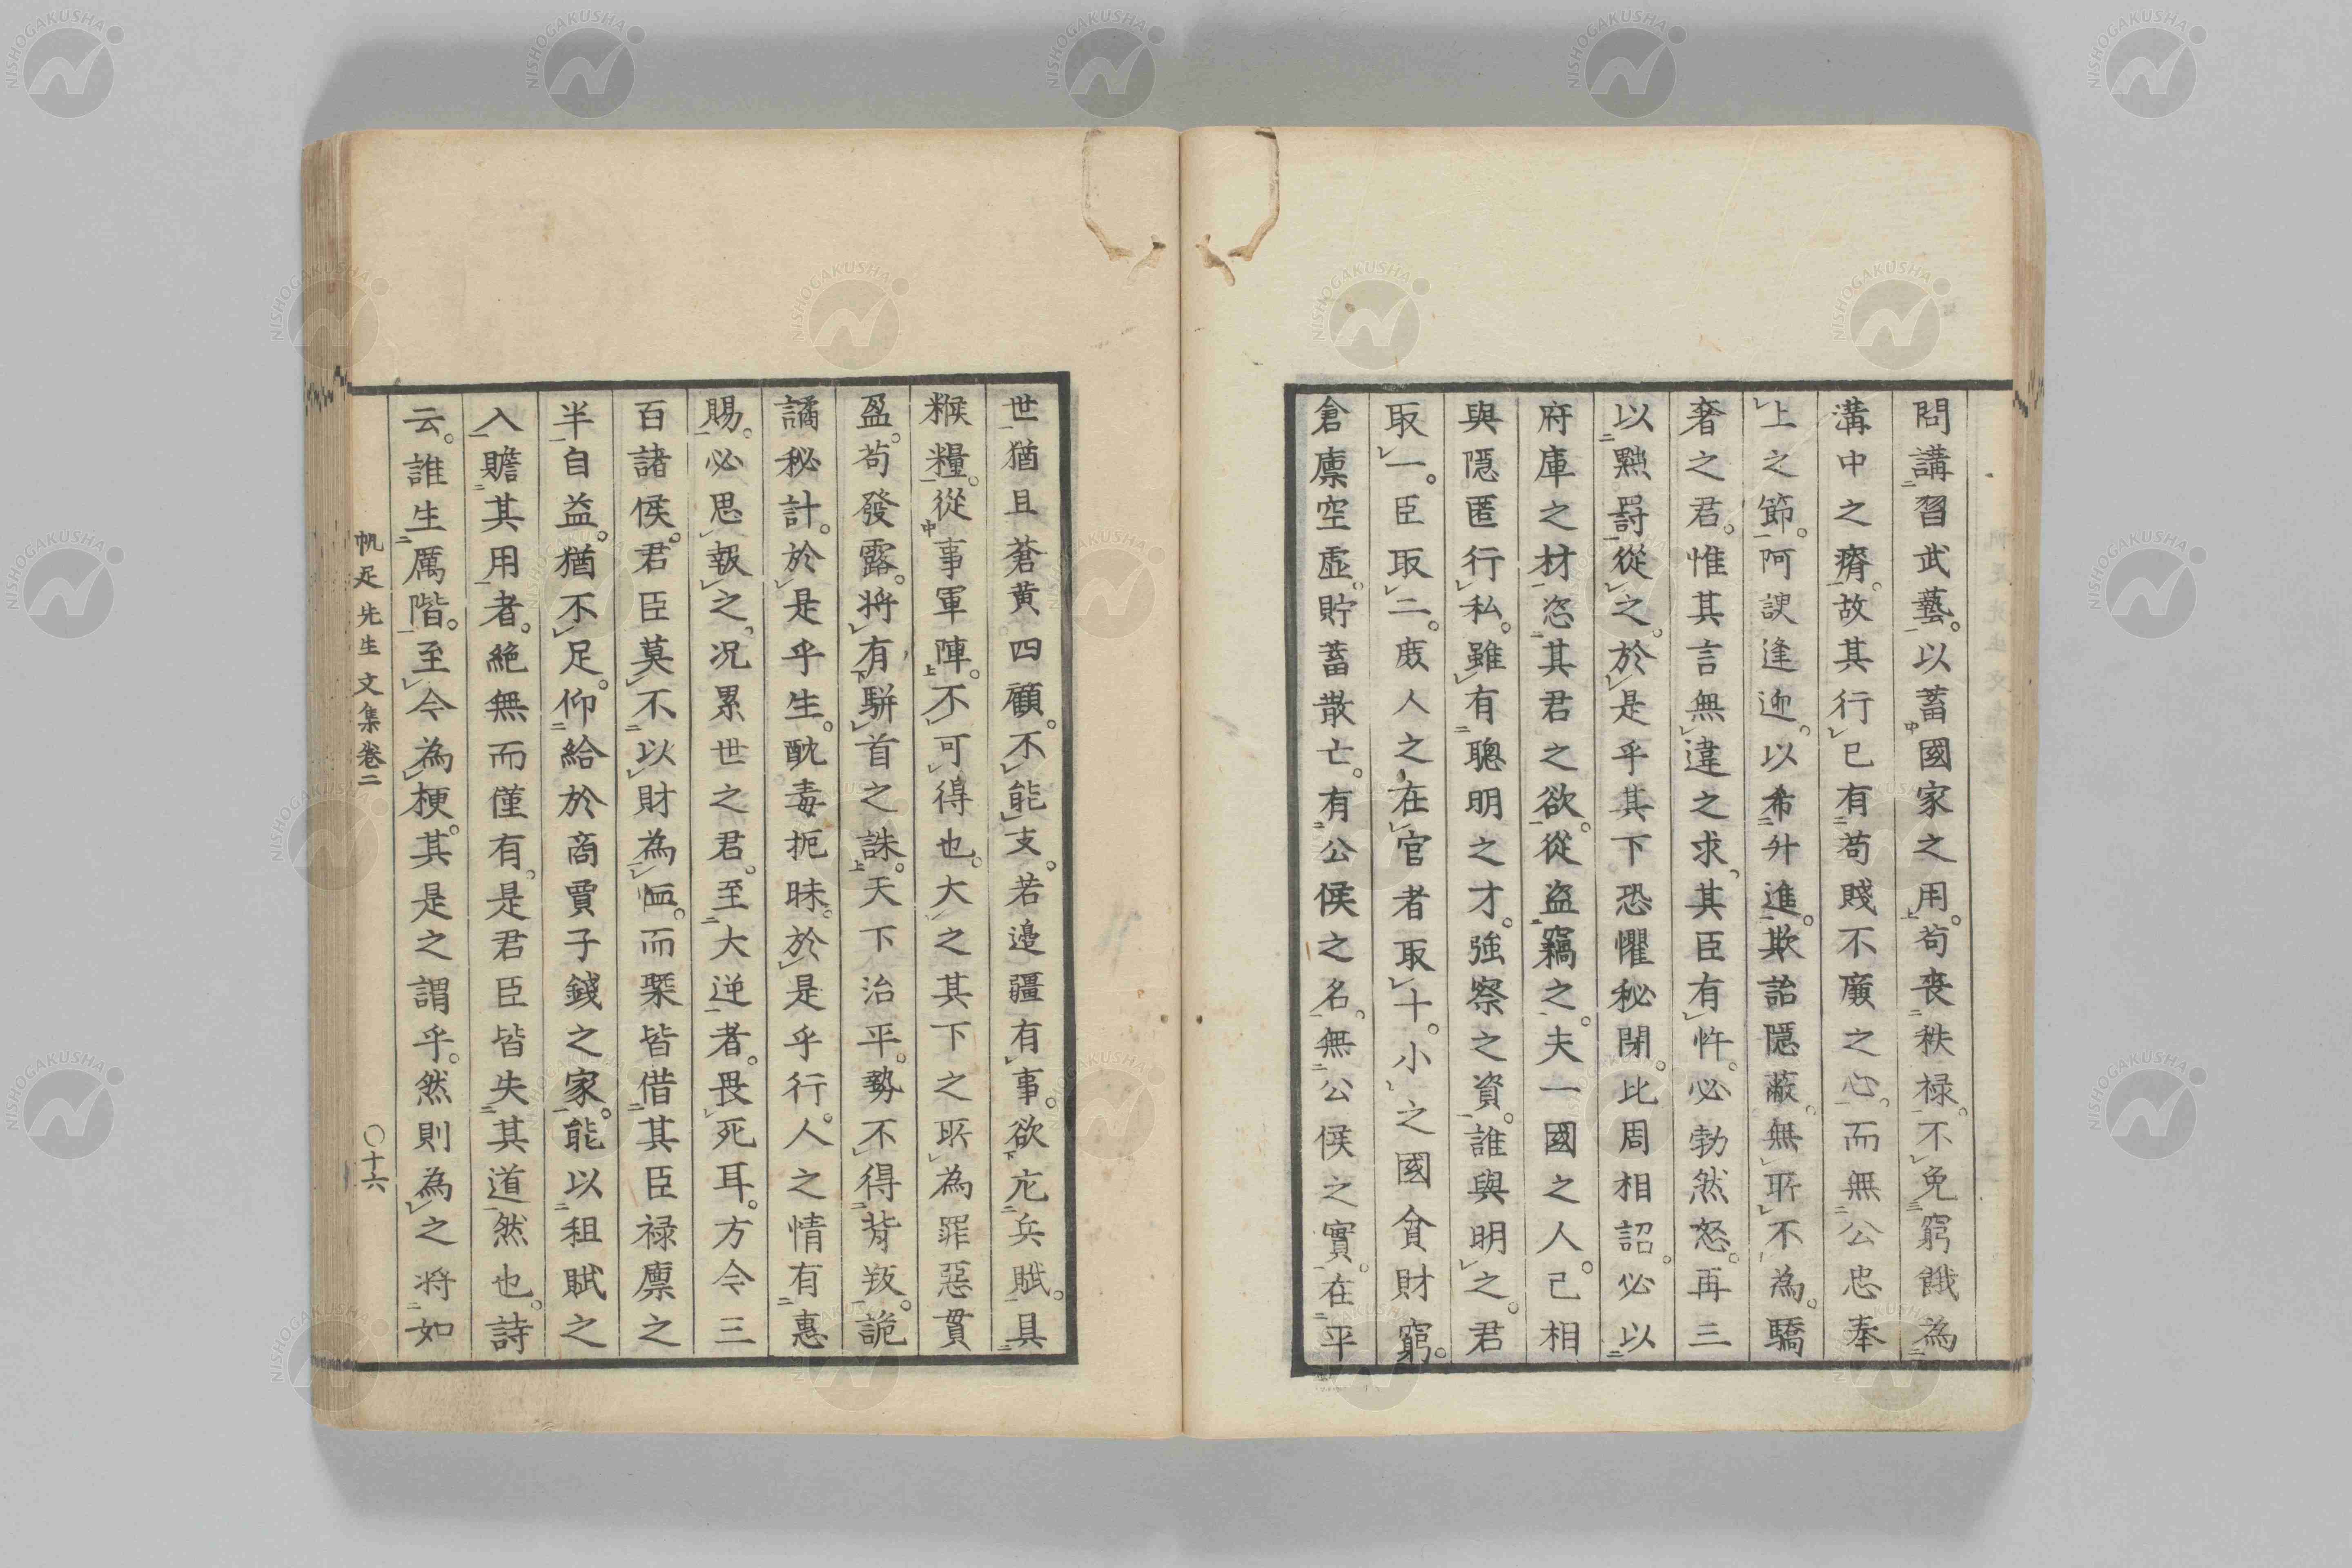 問講習武藝。以蓄國家之用。苟喪秩禄。不免窮餓為
溝中之瘠。故其行已有苟賤不廉之心。而無公忠奉
上之節。阿諛逢迎。以希升進。欺詒隱蔽。無所不為。驕
奢之君。惟其言無違之求。其臣有忤。必勃然怒。再三
以黜罸從之。於是乎其下恐懼秘閉。比周相詔。必以
府庫之材。恣其君之欲。從盗竊之。夫一國之人。己相
與隱匿行私。雖有聰明之才。強察之資。誰與明之。君
取一。臣取二。庻人之在官者取十。小之國貧財窮。
倉廪空虛。貯蓄散亡。有公侯之名。無公侯之實。在平
世猶且蒼黄四顧。不能支。若邉疆有事。欲充兵賦。具
糇糧。從事軍陣。不可得也。大之其下之所為罪惡貫
盈。苟發露。將有駢首之誅。天下治平。勢不得背叛。詭
譎秘計。於是乎生。酖毒扼昧。於是乎行。人之情有惠
賜。必思報之。况累世之君。至大逆者。畏死耳。方今三
百諸侯。君臣莫不以財為恤。而槩皆借其臣禄廪之
半自益。猶不足。仰給於商賈子錢之家。能以租賦之
入贍其用者。絶無而僅有。是君臣皆失其道然也。詩
云。誰生厲階。至今為梗。其是之謂乎。然則為之将如
帆足先生文集卷二 〇十六
NISHOGAKUSHA